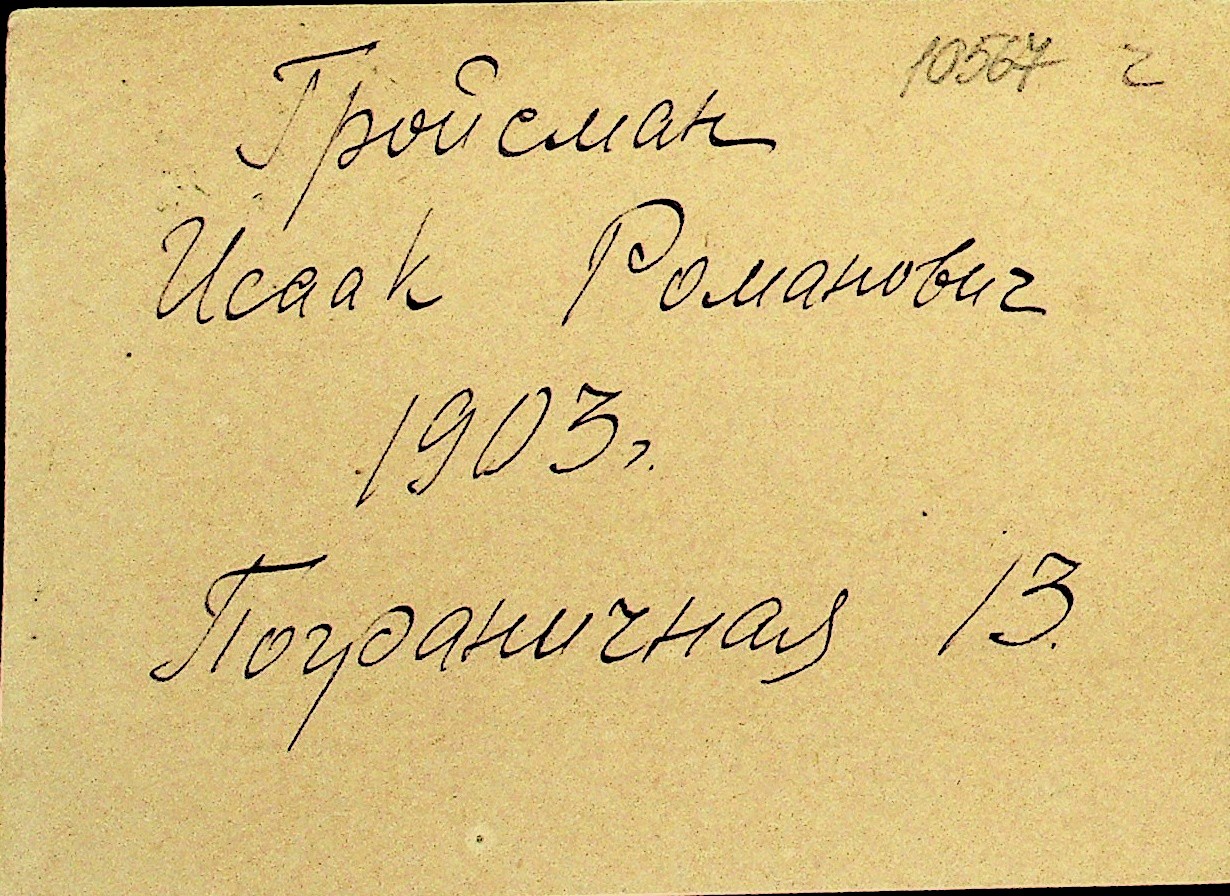 10567 г
Гройсман
Исаак Романович
1903г.
Пограничная 13.